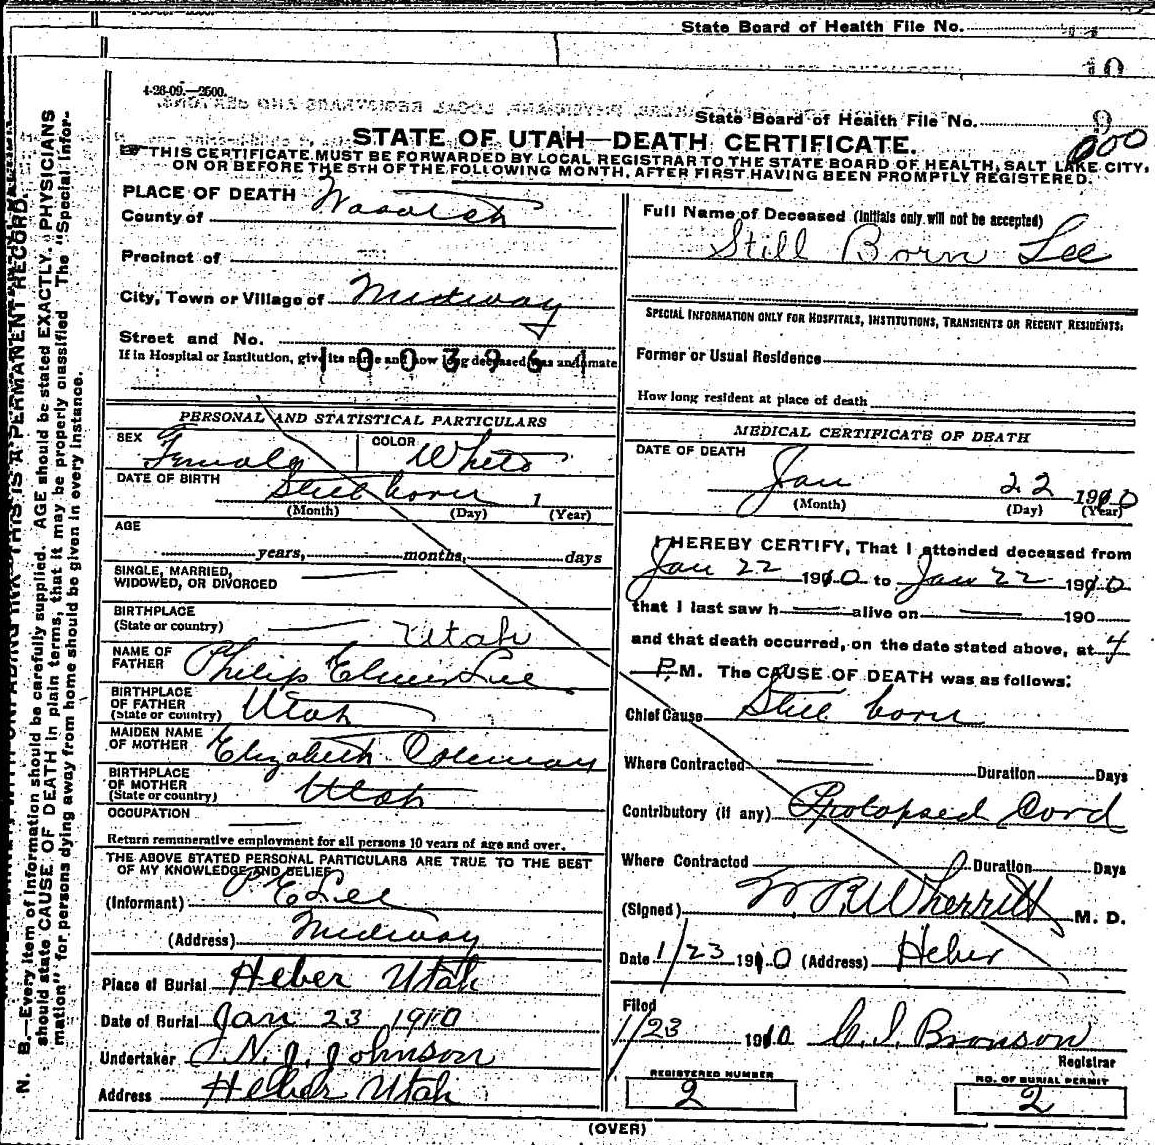 State Board of Health File No.
10
4-26-09.—2500.
State Board of Health File No. 9
000
STATE OF UTAH—DEATH CERTIFICATE.
THIS CERTIFICATE MUST BE FORWARDED BY LOCAL REGISTRAR TO THE STATE BOARD OF HEALTH, SALT LAKE CITY,
ON OR BEFORE THE 5TH OF THE FOLLOWING MONTH, AFTER FIRST HAVING BEEN PROMPTLY REGISTERED.
PLACE OF DEATH
County of Wasatch
Precinct of
City, Town or Village of Midway
Street and No.
If in Hospital or Institution, give its name and how long deceased was an inmate
1003961
PERSONAL AND STATISTICAL PARTICULARS
SEX Female COLOR White
DATE OF BIRTH Still born 1
(Month) (Day) (Year)
AGE
years, months, days
SINGLE, MARRIED,
WIDOWED, OR DIVORCED
BIRTHPLACE
(State or country) Utah
NAME OF
FATHER Philip Elmer Lee
BIRTHPLACE
OF FATHER
(State or country) Utah
MAIDEN NAME
OF MOTHER Elizabeth Coleman
BIRTHPLACE
OF MOTHER
(State or country) Utah
OCCUPATION
Return remunerative employment for all persons 10 years of age and over.
THE ABOVE STATED PERSONAL PARTICULARS ARE TRUE TO THE BEST
OF MY KNOWLEDGE AND BELIEF
(Informant) P E Lee
(Address) Midway
Place of Burial Heber Utah
Date of Burial Jan 23 1910
Undertaker J. N. J. Johnson
Address Heber Utah
Full Name of Deceased (Initials only will not be accepted)
Still Born Lee
SPECIAL INFORMATION ONLY FOR HOSPITALS, INSTITUTIONS, TRANSIENTS OR RECENT RESIDENTS.
Former or Usual Residence
How long resident at place of death
MEDICAL CERTIFICATE OF DEATH
DATE OF DEATH
Jan 22 1910
(Month) (Day) (Year)
I HEREBY CERTIFY, That I attended deceased from
Jan 22 1910 to Jan 22 1910
that I last saw h alive on 190
and that death occurred, on the date stated above, at 4
P.M. The CAUSE OF DEATH was as follows:
Chief Cause Still born
Where Contracted Duration Days
Contributory (if any) Prolapsed Cord
Where Contracted Duration Days
(Signed) W R Wherritt M. D.
Date 1/23 1910 (Address) Heber
Filed
1/23 1910 C. I. Bronson
Registrar
REGISTERED NUMBER
2
NO. OF BURIAL PERMIT
2
(OVER)
N. B.—Every item of information should be carefully supplied. AGE should be stated EXACTLY. PHYSICIANS
should state CAUSE OF DEATH in plain terms, that it may be properly classified The "Special Infor-
mation" for persons dying away from home should be given in every instance.